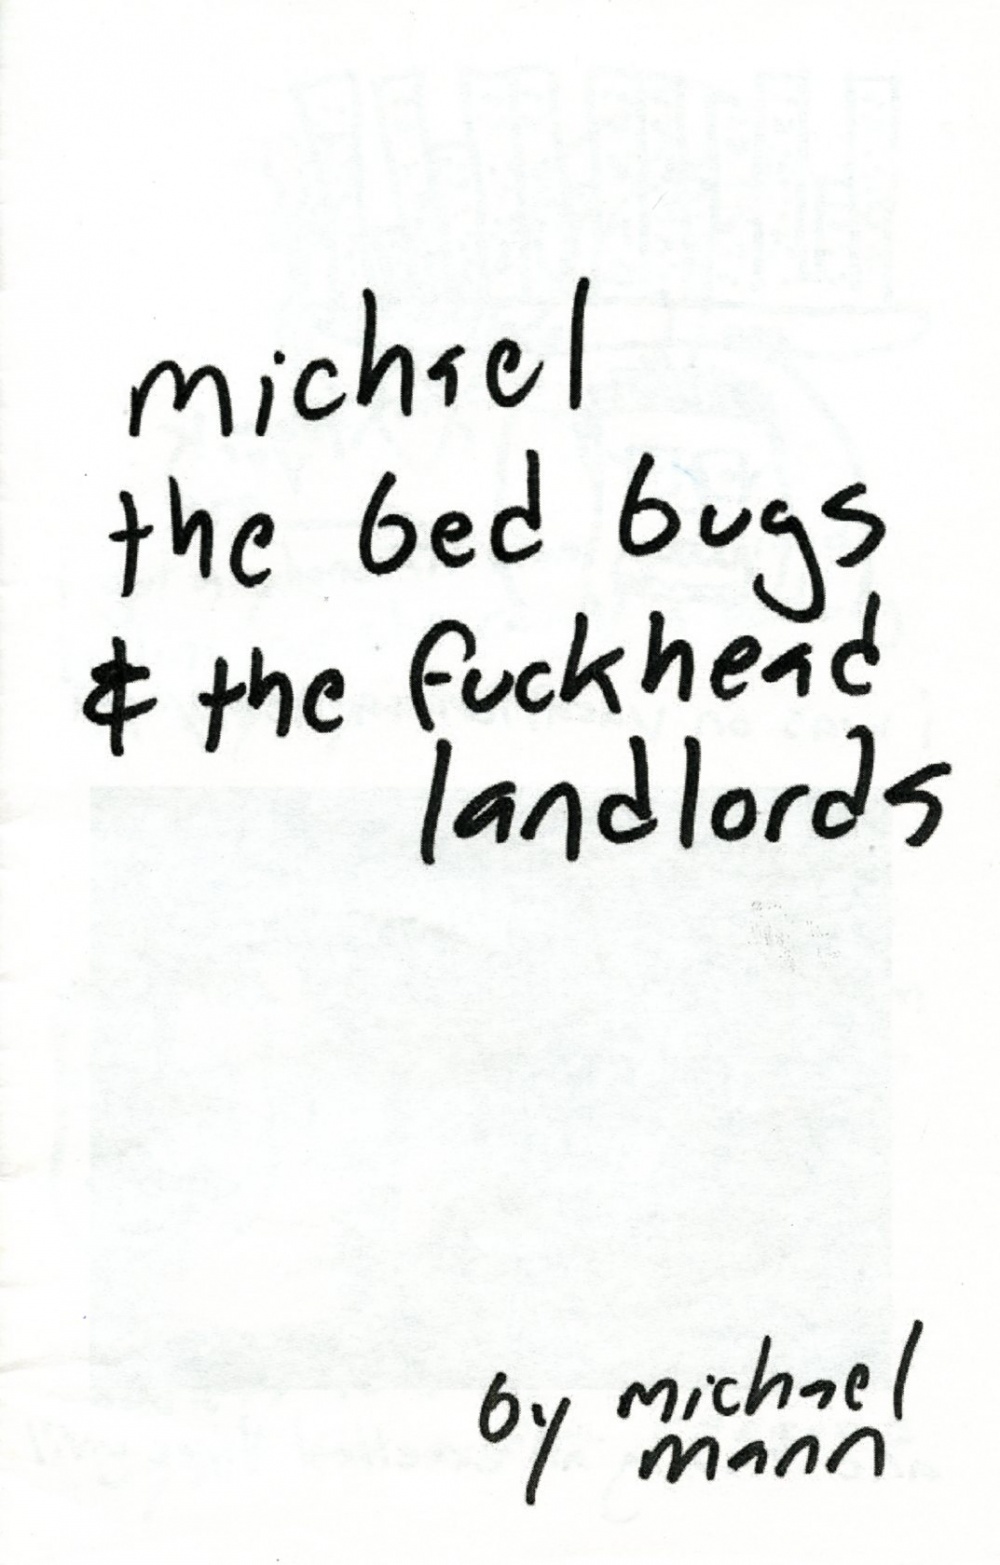 michael
the bed bugs
& the fuckhead
landlords
by michael
mann